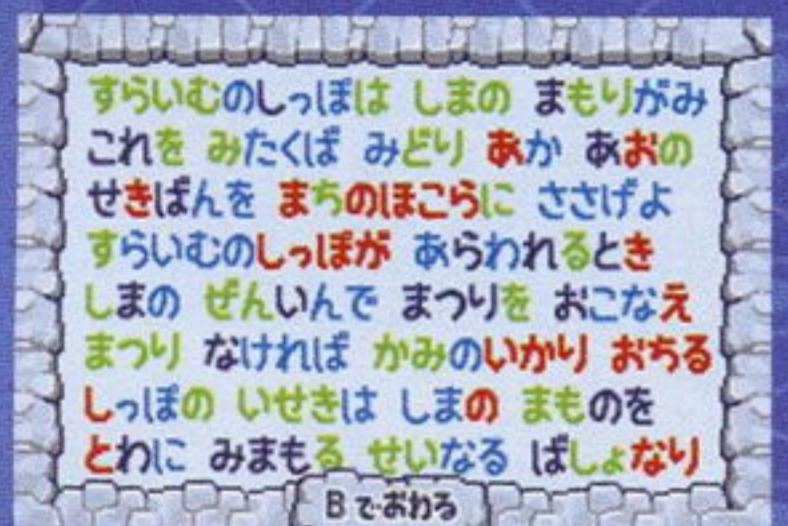 すらいむのしっぽは しまの まもりがみ
これを みたくば みどり あか あおの
せきばんを まちのほこらに ささげよ
すらいむのしっぽが あらわれるとき
しまの ぜんいんで まつりを おこなえ
まつり なければ かみのいかり おちる
しっぽの いせきは しまの まものを
とわに みまもる せいなる ばしょなり
Bでおわる